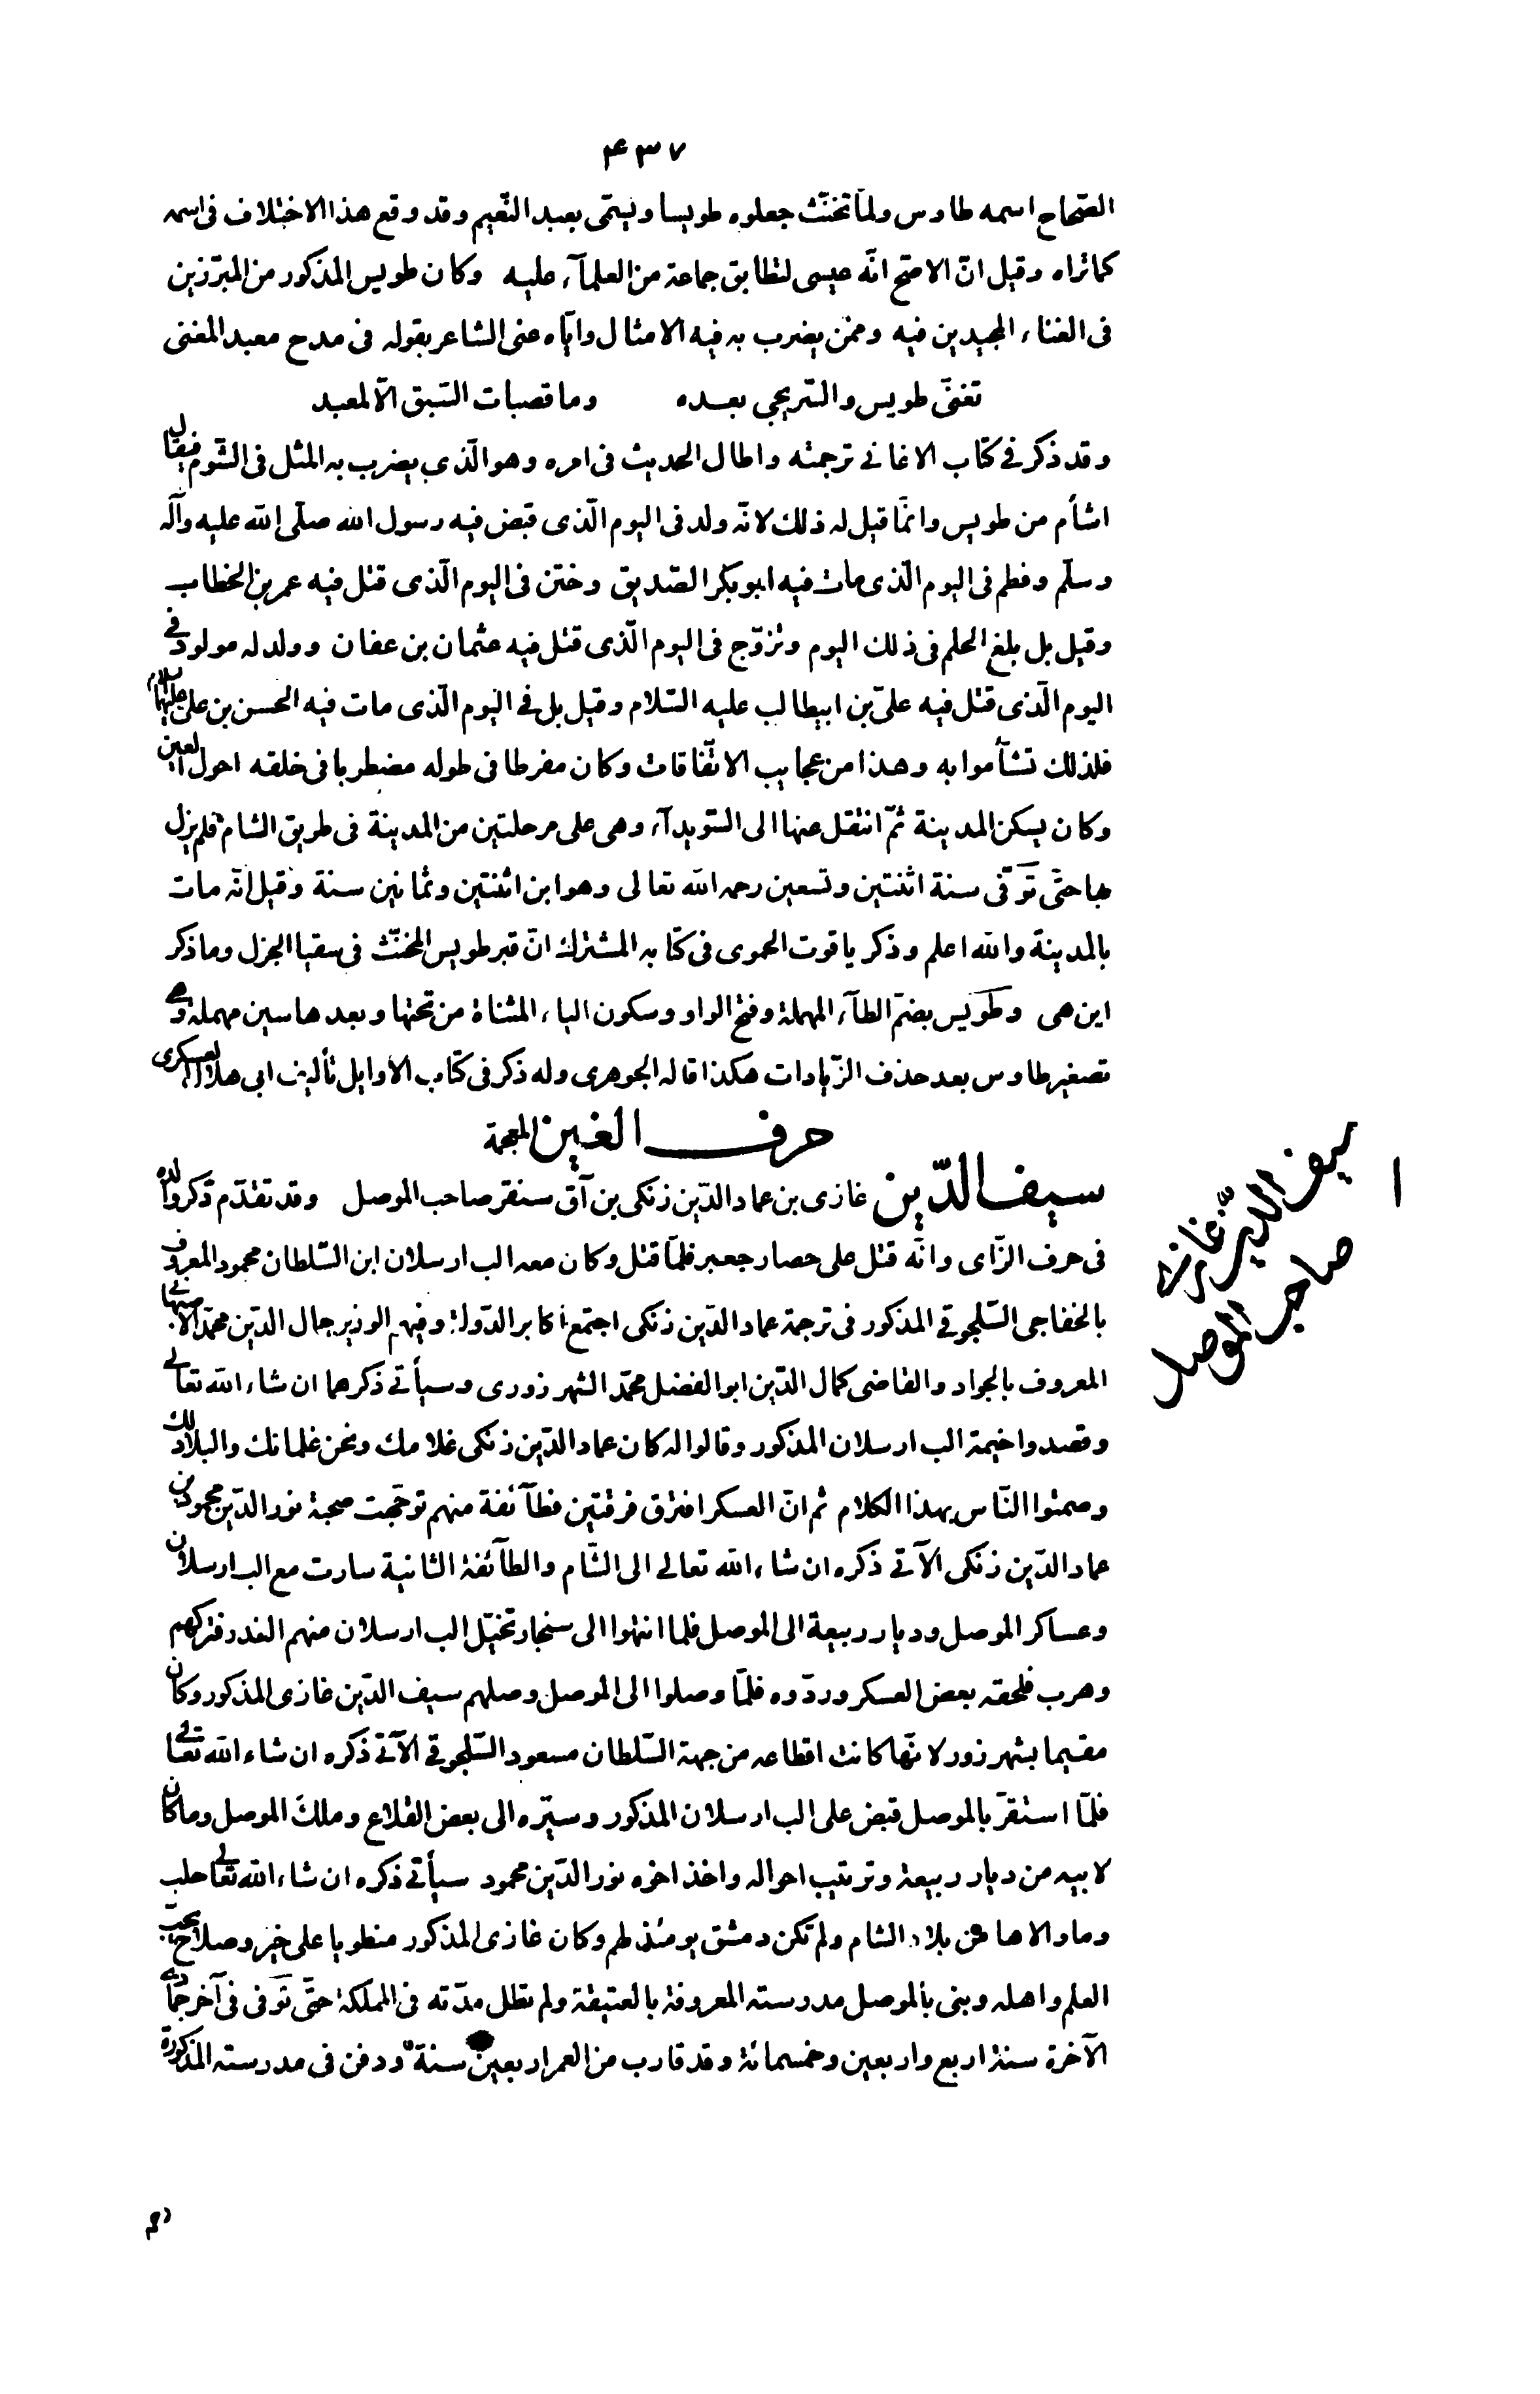 ۴۳۷
الصّحاح اسمه طاوس ولمّا تخنّث جعلوه طويسا ويسمّى بعبد النّعيم وقد وقع هذا الاختلاف فى اسمه
كما تراه وقيل انّ الاصحّ انّه عيسى لتطابق جماعة من العلمآء عليه وكان طويس المذكور من المبرّزين
فى الغناء المجيدين فيه وممّن يضرب به فيه الامثال وايّاه عنى الشاعر بقوله فى مدح معبد المغنى
تغنّى طويس والسّريجى بعده وما قصبات السّبق الّا لمعبد
وقد ذكر فى كتاب الاغانى ترجمته واطال الحديث فى امره وهو الّذى يضرب به المثل فى الشّوم فيقال
اشأم من طويس وانّما قيل له ذلك لانّه ولد فى اليوم الّذى قبض فيه رسول الله صلّى الله عليه وآله
وسلّم وفطم فى اليوم الّذى مات فيه ابو بكر الصّديق وختن فى اليوم الّذى قتل فيه عمر بن الخطاب
وقيل بل بلغ الحلم فى ذلك اليوم وتزوّج فى اليوم الّذى قتل فيه عثمان بن عفان وولد له مولود فى
اليوم الّذى قتل فيه علىّ بن ابيطالب عليه السّلام وقيل بل فى اليوم الّذى مات فيه الحسن بن على عليهما السلام
فلذلك تشأموا به وهذا من عجايب الاتّفاقات وكان مفرطا فى طوله مضطربا فى خلقه احول العين
وكان يسكن المدينة ثمّ انتقل عنها الى السّويدآء وهى على مرحلتين من المدينة فى طريق الشام فلم يزل
بها حتّى توفّى سنة اثنتين وتسعين رحمه الله تعالى وهو ابن اثنتين وثمانين سنة وقيل انّه مات
بالمدينة والله اعلم وذكر ياقوت الحموى فى كتابه المشترك انّ قبر طويس المخنّث فى سقيا الجزل وما ذكر
اين هى وطويس بضمّ الطآء المهملة وفتح الواو وسكون الياء المثناة من تحتها وبعدها سين مهملة وهى
تصغير طاوس بعد حذف الزّيادات هكذا قاله الجوهرى وله ذكر فى كتاب الاوايل تأليف ابى هلال العسكرى
حرف الغين المعجمة
سيف الدّين غازى بن عماد الدّين زنكى بن آق سنقر صاحب الموصل وقد تقدّم ذكر والده
فى حرف الزّاى وانّه قتل على حصار جعبر فلمّا قتل وكان معه الب ارسلان ابن السّلطان محمود المعروف
بالخفاجى السّلجوقى المذكور فى ترجمة عماد الدّين زنكى اجتمع اكابر الدّولة وفيهم الوزير جمال الدّين محمّد الاصبهانى
المعروف بالجواد والقاضى كمال الدّين ابو الفضل محمّد الشهرزورى وسيأتى ذكرهما ان شاء الله تعالى
وقصدوا خيمة الب ارسلان المذكور وقالوا له كان عماد الدّين زنكى غلامك ونحن غلمانك والبلاد لك
وصمتوا النّاس بهذا الكلام ثم انّ العسكر افترق فرقتين فطآئفة منهم توجّهت صحبة نور الدّين محمود بن
عماد الدّين زنكى الآتى ذكره ان شاء الله تعالى الى الشّام والطآئفة الثانية سارت مع الب ارسلان
وعساكر الموصل وديار ربيعة الى الموصل فلما انتهوا الى سنجار تخيّل الب ارسلان منهم الغدر فتركهم
وهرب فلحقه بعض العسكر وردّوه فلمّا وصلوا الى الموصل وصلهم سيف الدّين غازى المذكور وكان
مقيما بشهرزور لانّها كانت اقطاعه من جهة السّلطان مسعود السّلجوقى الآتى ذكره ان شاء الله تعالى
فلمّا استقرّ بالموصل قبض على الب ارسلان المذكور وسيّره الى بعض القلاع وملك الموصل وما كان
لابيه من ديار ربيعة وترتيب احواله واخذ اخوه نور الدّين محمود سيأتى ذكره ان شاء الله تعالى حلب
وما والاها من بلاد الشام ولم تكن دمشق يومئذ لهم وكان غازى المذكور منطويا على خير وصلاح يحبّ
العلم واهله وبنى بالموصل مدرسته المعروفة بالعتيقة ولم تطل مدّته فى المملكة حتّى توفى فى آخر جمادى
الآخرة سنة اربع واربعين وخمسمائة وقد قارب من العمر اربعين سنة ودفن فى مدرسته المذكورة
ا
سيف الدّين غازى
صاحب الموصل